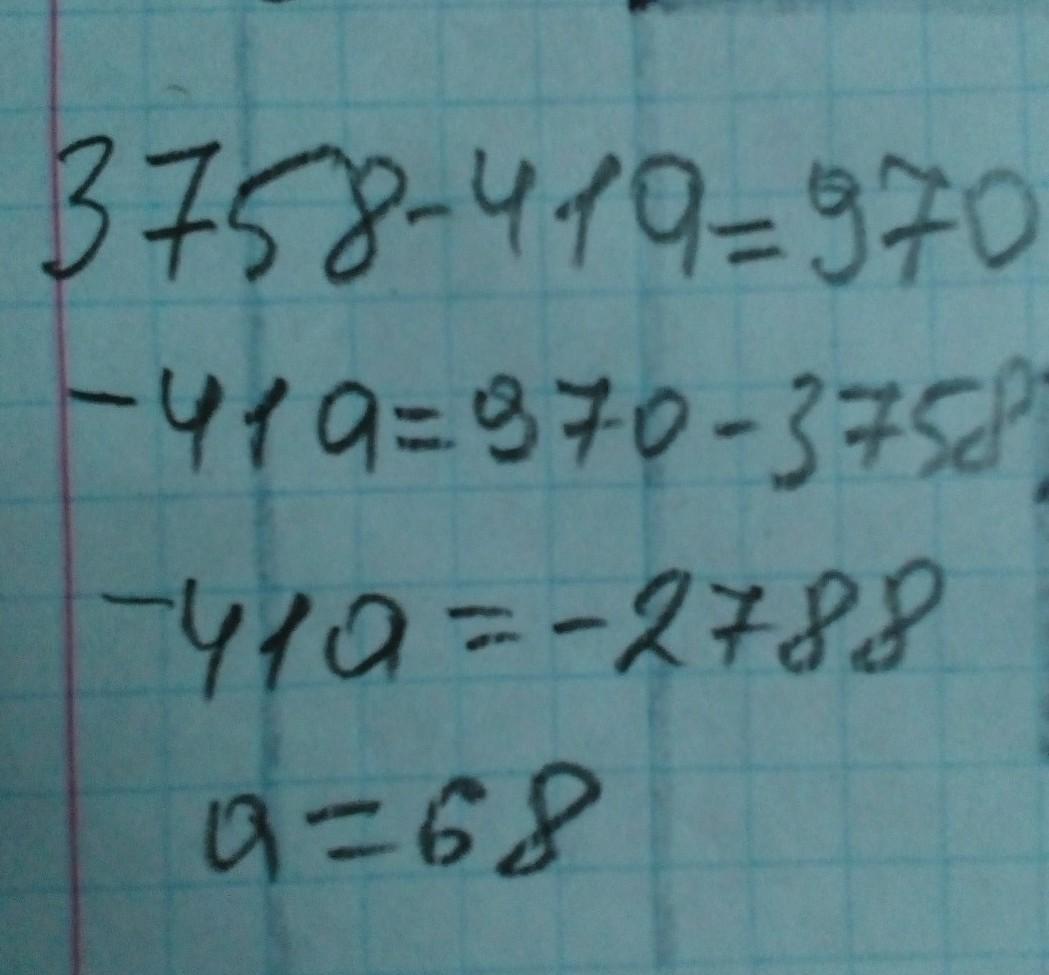 3758-41a=970
-41a=970-3758
-41a=-2788
a=68